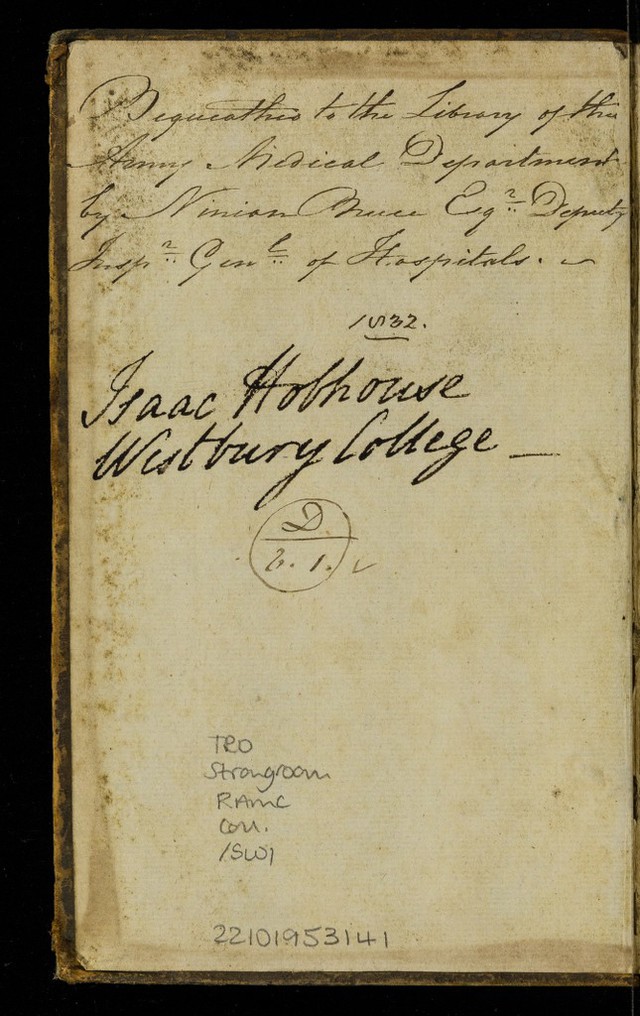 Bequeathed to the Library of the
Army Medical Department
by Ninian Bruce Esqr. Deputy
Inspr. Genl. of Hospitals.
1832.
Isaac Hobhouse
Westbury College
D
2. 1.
TRO
Strongroom
RAMC
Coll.
/SWI
22101953141